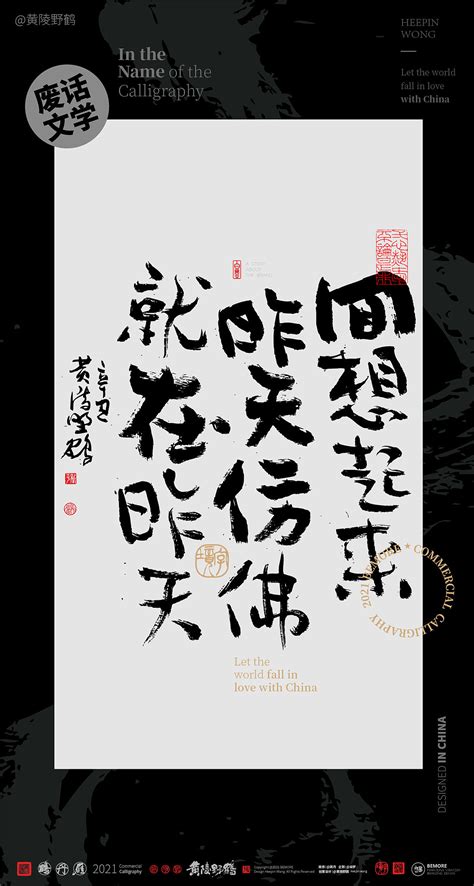 @黄陵野鹤
HEEPIN
WONG
In the
Name of the
Calligraphy
Let the world
fall in love
with China
废话
文学
回想起来
昨天仿佛
就在昨天
辛丑
黄陵野鹤
2021 BEMORE ★ COMMERCIAL CALLIGRAPHY
Let the
world fall in
love with China
DESIGNED IN CHINA
2021
Commercial
Calligraphy
黄陵野鹤
BEMORE